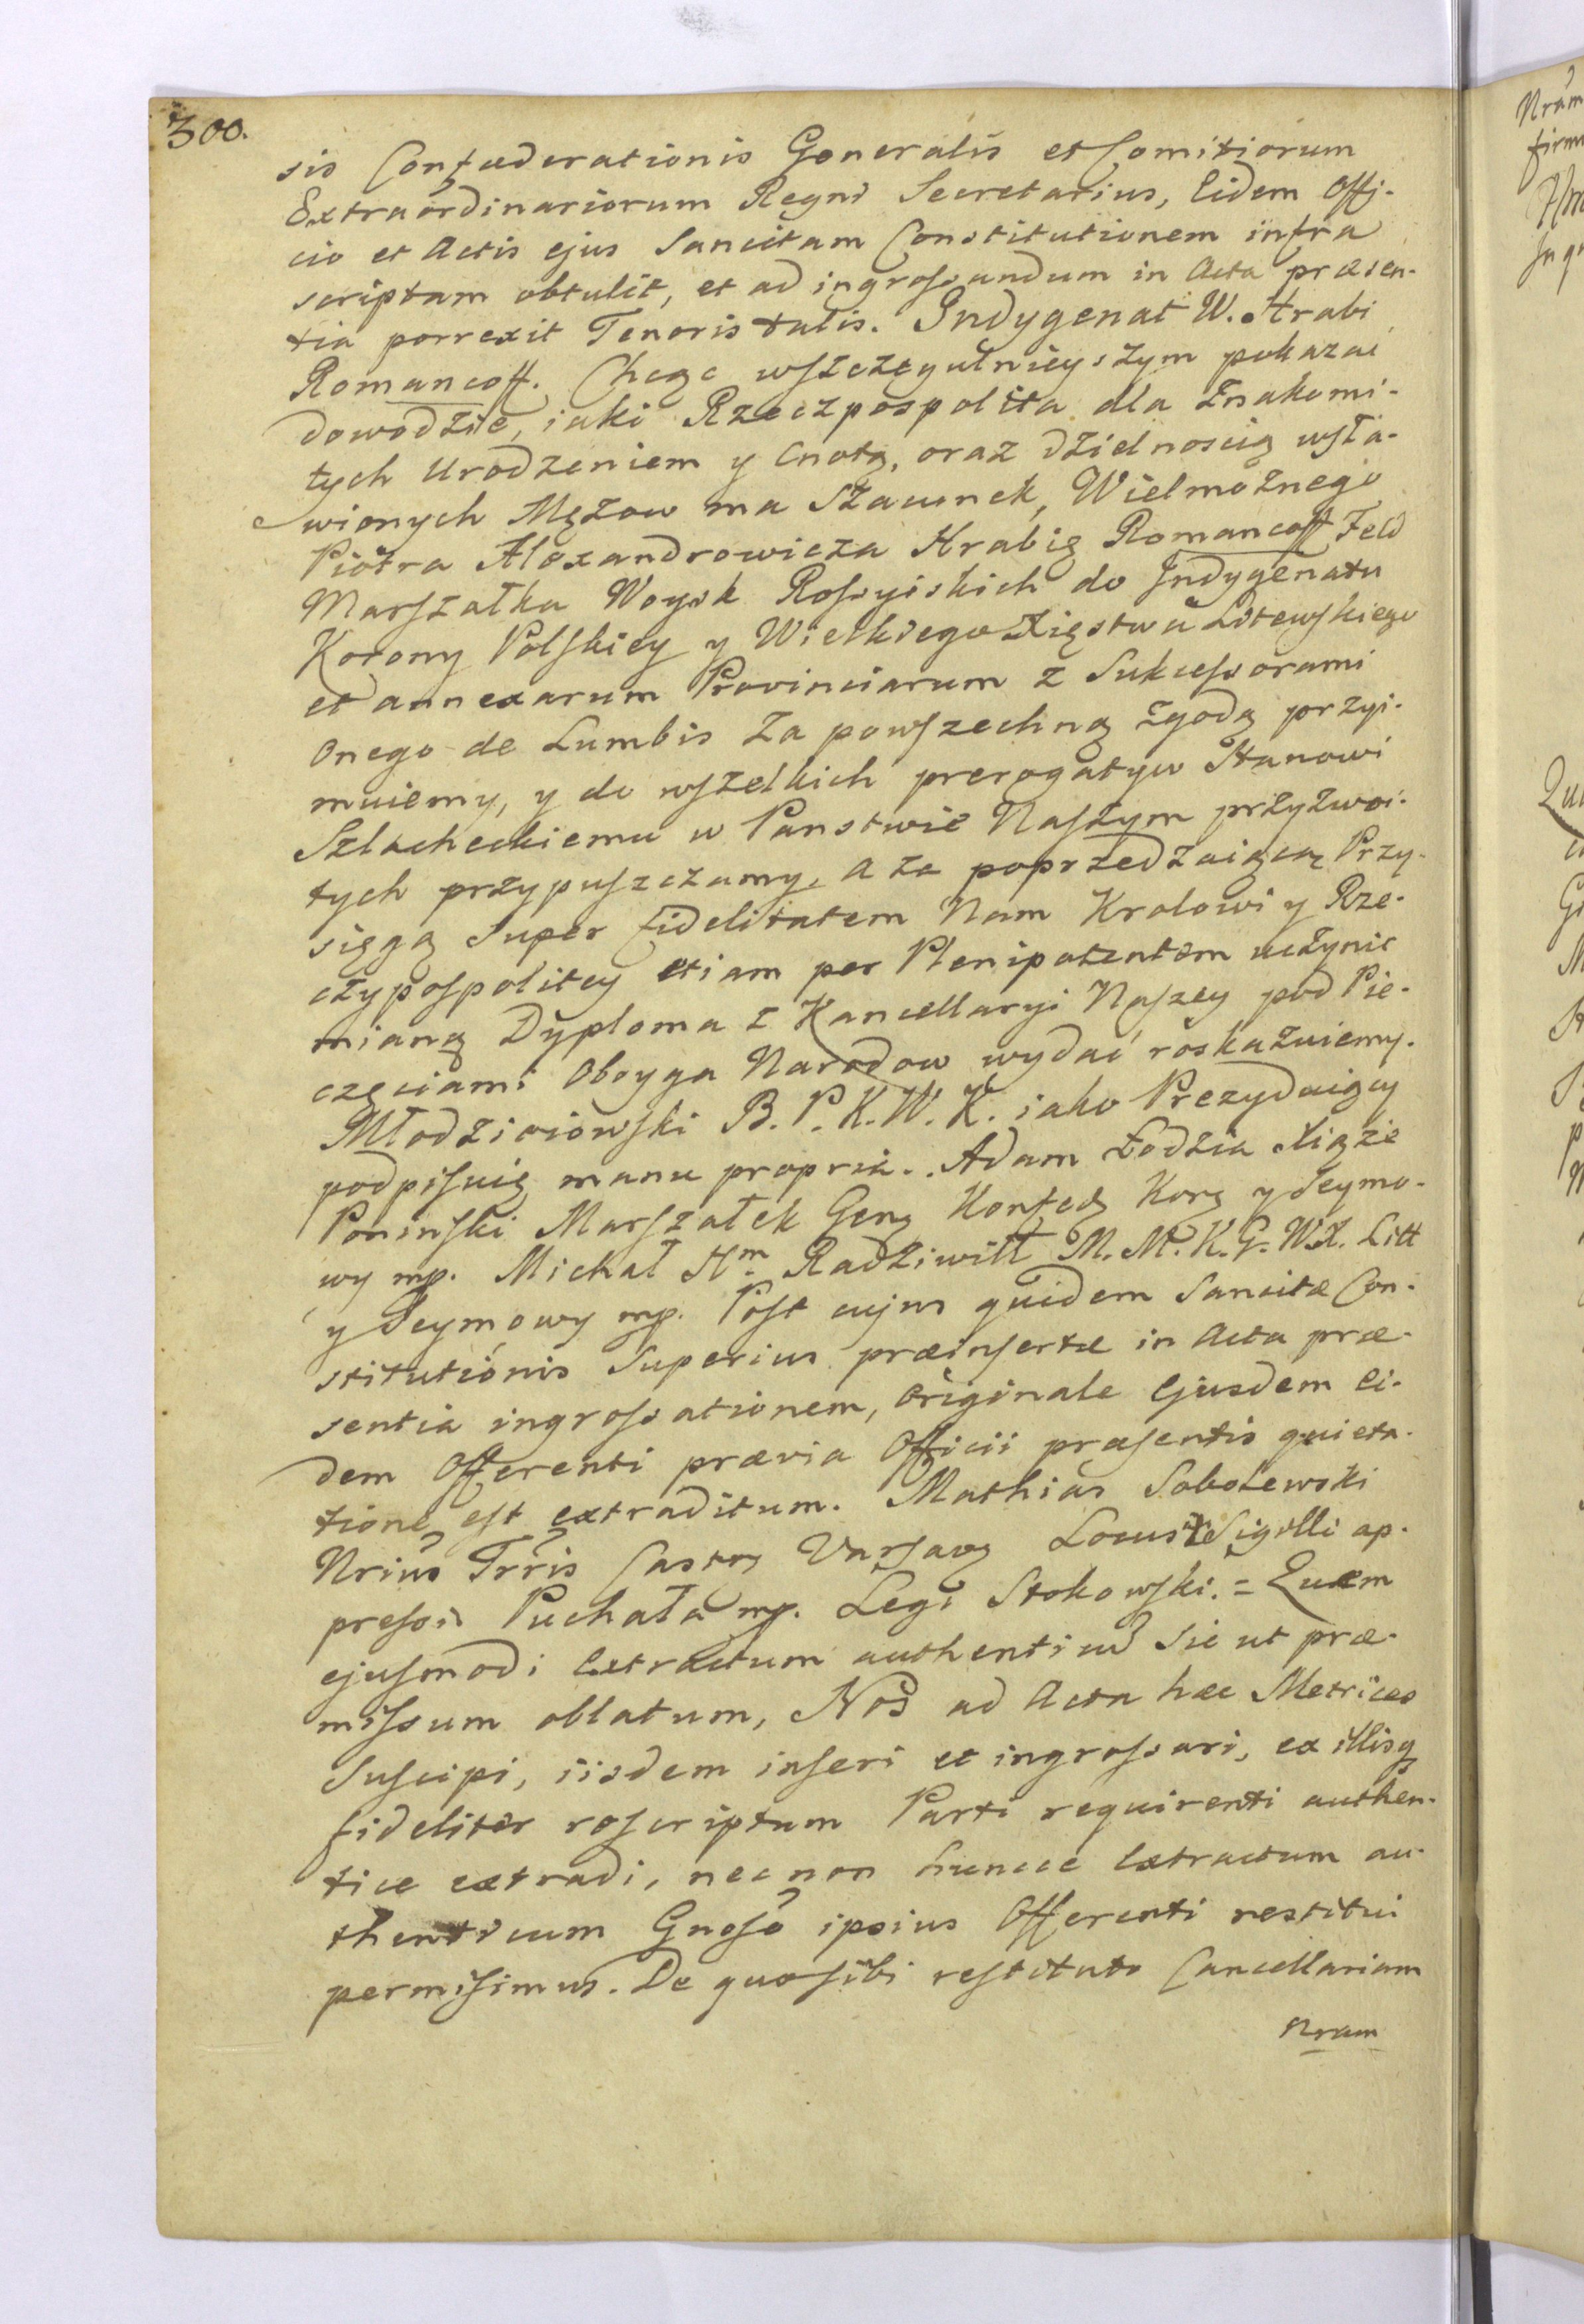 300.
sis Confæderationis Generalis et Comitiorum
Extraordinariorum Regni Secretarius, Eidem Offi-
cio et Actis ejus Sancitam Constitutionem infra
scriptam obtulit, et ad ingrossandum in Acta præsen-
tia porrexit Tenoris talis. Indygenat W. Hrabi
Romancoff. Chcąc wszczegulnieyszym pokazać
dowodzie, iaki Rzeczpospolita dla Znakomi-
tych Urodzeniem y Cnotą, oraz dzielnoscią wsła-
wionych Mężow ma Szacunek, Wielmożnego
Piotra Alexandrowicza Hrabię Romancoff Feld
Marszałka Woysk Rossyiskich do Indygenatu
Korony Polskiey y Wielkiego Xięstwa Litewskiego
et annexarum Provinciarum z Sukcessorami
Onego de Lumbis Za powszechną zgodą przyi-
muiemy, y do wszelkich prerogatyw Stanowi
Szlacheckiemu w Panstwie Naszym przyzwoi-
tych przypuszczamy. A za poprzedzaiącą Przy-
sięgą Super fidelitatem Nam Krolowi y Rze-
czypospolitey etiam per Plenipotentem uczynic
mianą Dyploma z Kancellaryi Naszey pod Pie-
częciami Oboyga Narodow wydać roskazuiemy.
Młodzieiowski B. P. K. W. K. iako Prezyduiący
podpisuię manu propria. Adam Łodzia Xiąże
Poninski Marszałek Genȝ Konfedȝ Korȝ y Seymo-
wy mp. Michał Hm. Radziwiłł M. M. K. G. W. X. Litt
y Seymowy mp. Post cujus quidem Sancitæ Con-
stitutionis Superius præinsertæ in Acta præ-
sentia ingrossationem, Originale Ejusdem Ei-
dem Offerenti prævia Officii præsentis quieta-
tione est extraditum. Mathias Sobolewski
Nrius Trris Castrȝ Varsavȝ Locus Sigilli ap-
pressi Puchała mp. Legi Stokowski. = Quem
ejusmodi Extractum authenticū Sic ut præ-
missum oblatum, Nos ad Acta hæc Metrices
Suscipi, iisdem inseri et ingrossari, ex illisq
fideliter rescriptum Parti requirenti authen-
tice extradi, necnon huncce Extractum au-
thenticum Gnoso ipsius Offerenti restitui
permisimus. De quo sibi restituto Cancellariam
Nram